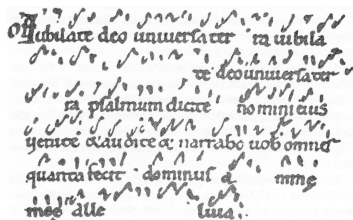 Of Iubilate deo universa ter ra iubila
te deo universa ter
ra psalmum dicite nomini eius
venite & audite & narrabo vob omnes
quanta fecit dominus &
mee alle luia